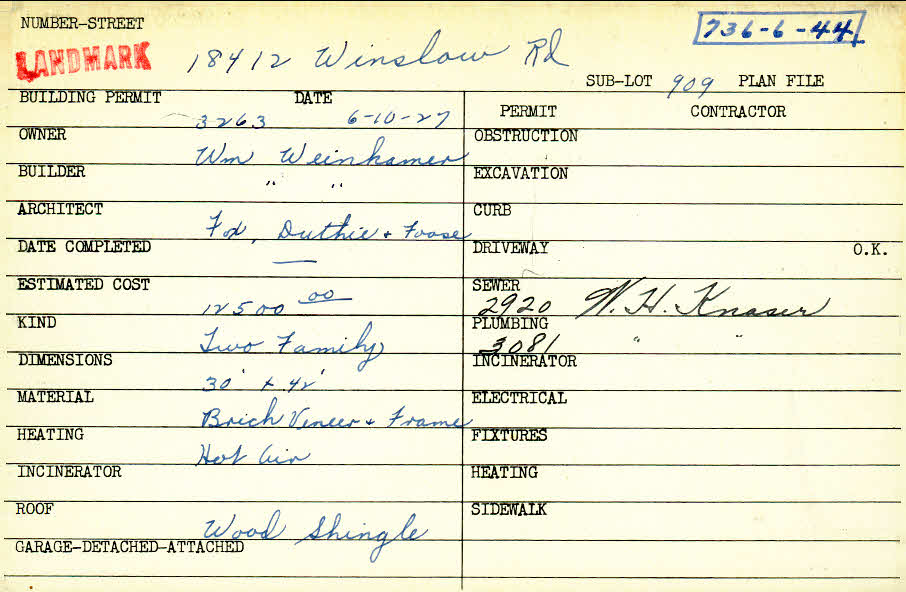 NUMBER-STREET
736-6-44
LANDMARK
18412 Winslow Rd
SUB-LOT 909 PLAN FILE
BUILDING PERMIT DATE
3263 6-10-27
OWNER
Wm Weinkamer
BUILDER
" " " "
ARCHITECT
Fox, Duthie + Foose
DATE COMPLETED
—
ESTIMATED COST
12500 00
KIND
Two Family
DIMENSIONS
30' x 42'
MATERIAL
Brick Veneer + Frame
HEATING
Hot Air
INCINERATOR
ROOF
Wood Shingle
GARAGE-DETACHED-ATTACHED
PERMIT CONTRACTOR
OBSTRUCTION
EXCAVATION
CURB
DRIVEWAY O.K.
SEWER
2920 W. H. Knaser
PLUMBING
3081 " "
INCINERATOR
ELECTRICAL
FIXTURES
HEATING
SIDEWALK